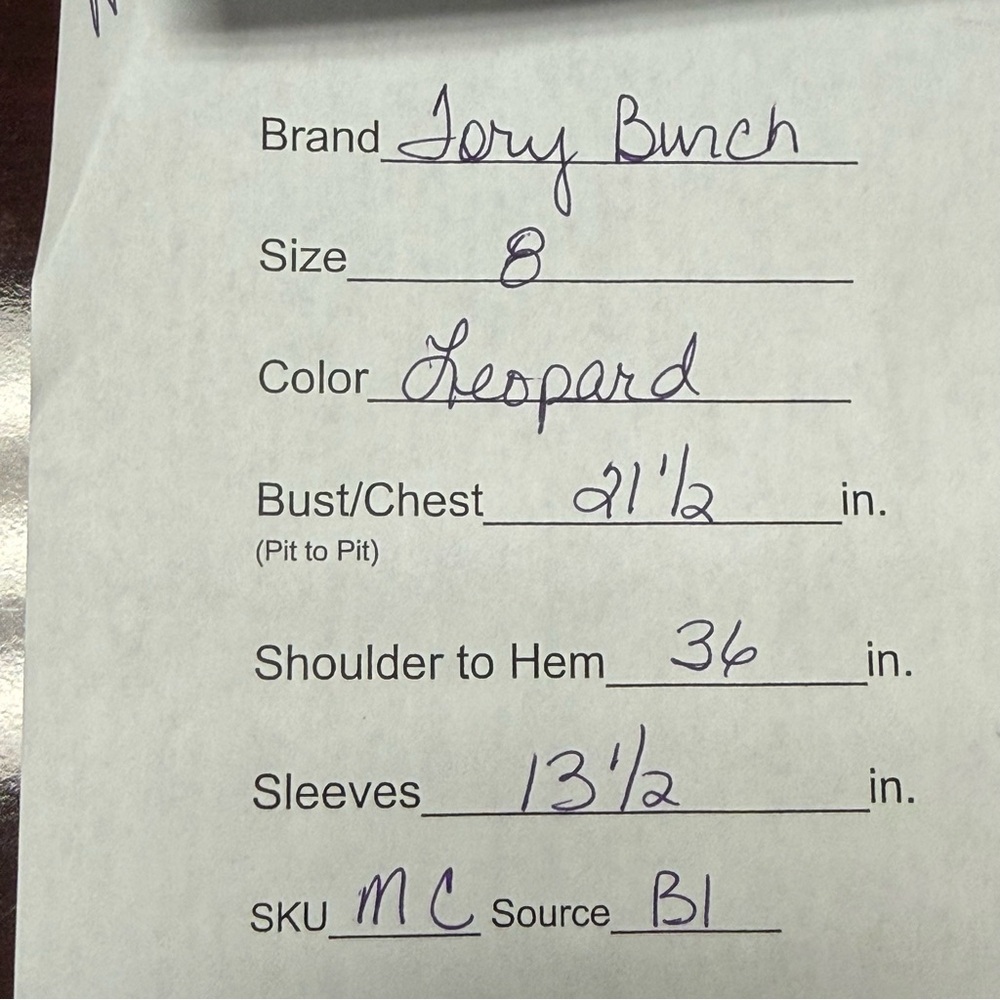 Brand Tory Burch
Size 8
Color Leopard
Bust/Chest 21 1/2 in.
(Pit to Pit)
Shoulder to Hem 36 in.
Sleeves 13 1/2 in.
SKU MC Source B1